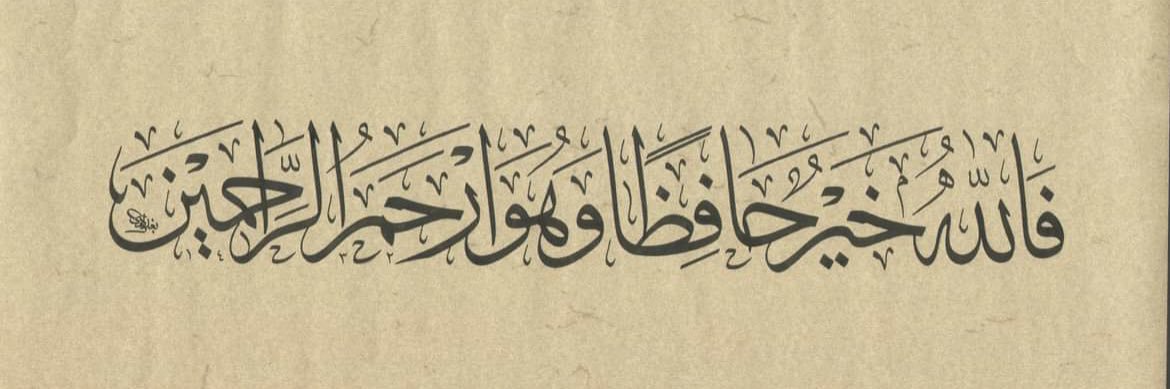 فَاللّٰهُ خَيْرٌ حَافِظًا وَهُوَ اَرْحَمُ الرَّاحِمِيْنَ